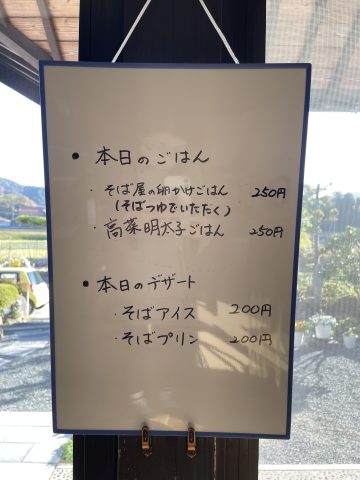 ● 本日のごはん
・そば屋の卵かけごはん 250円
(そばつゆでいただく)
・高菜明太子ごはん 250円
● 本日のデザート
・そばアイス 200円
・そばプリン 200円